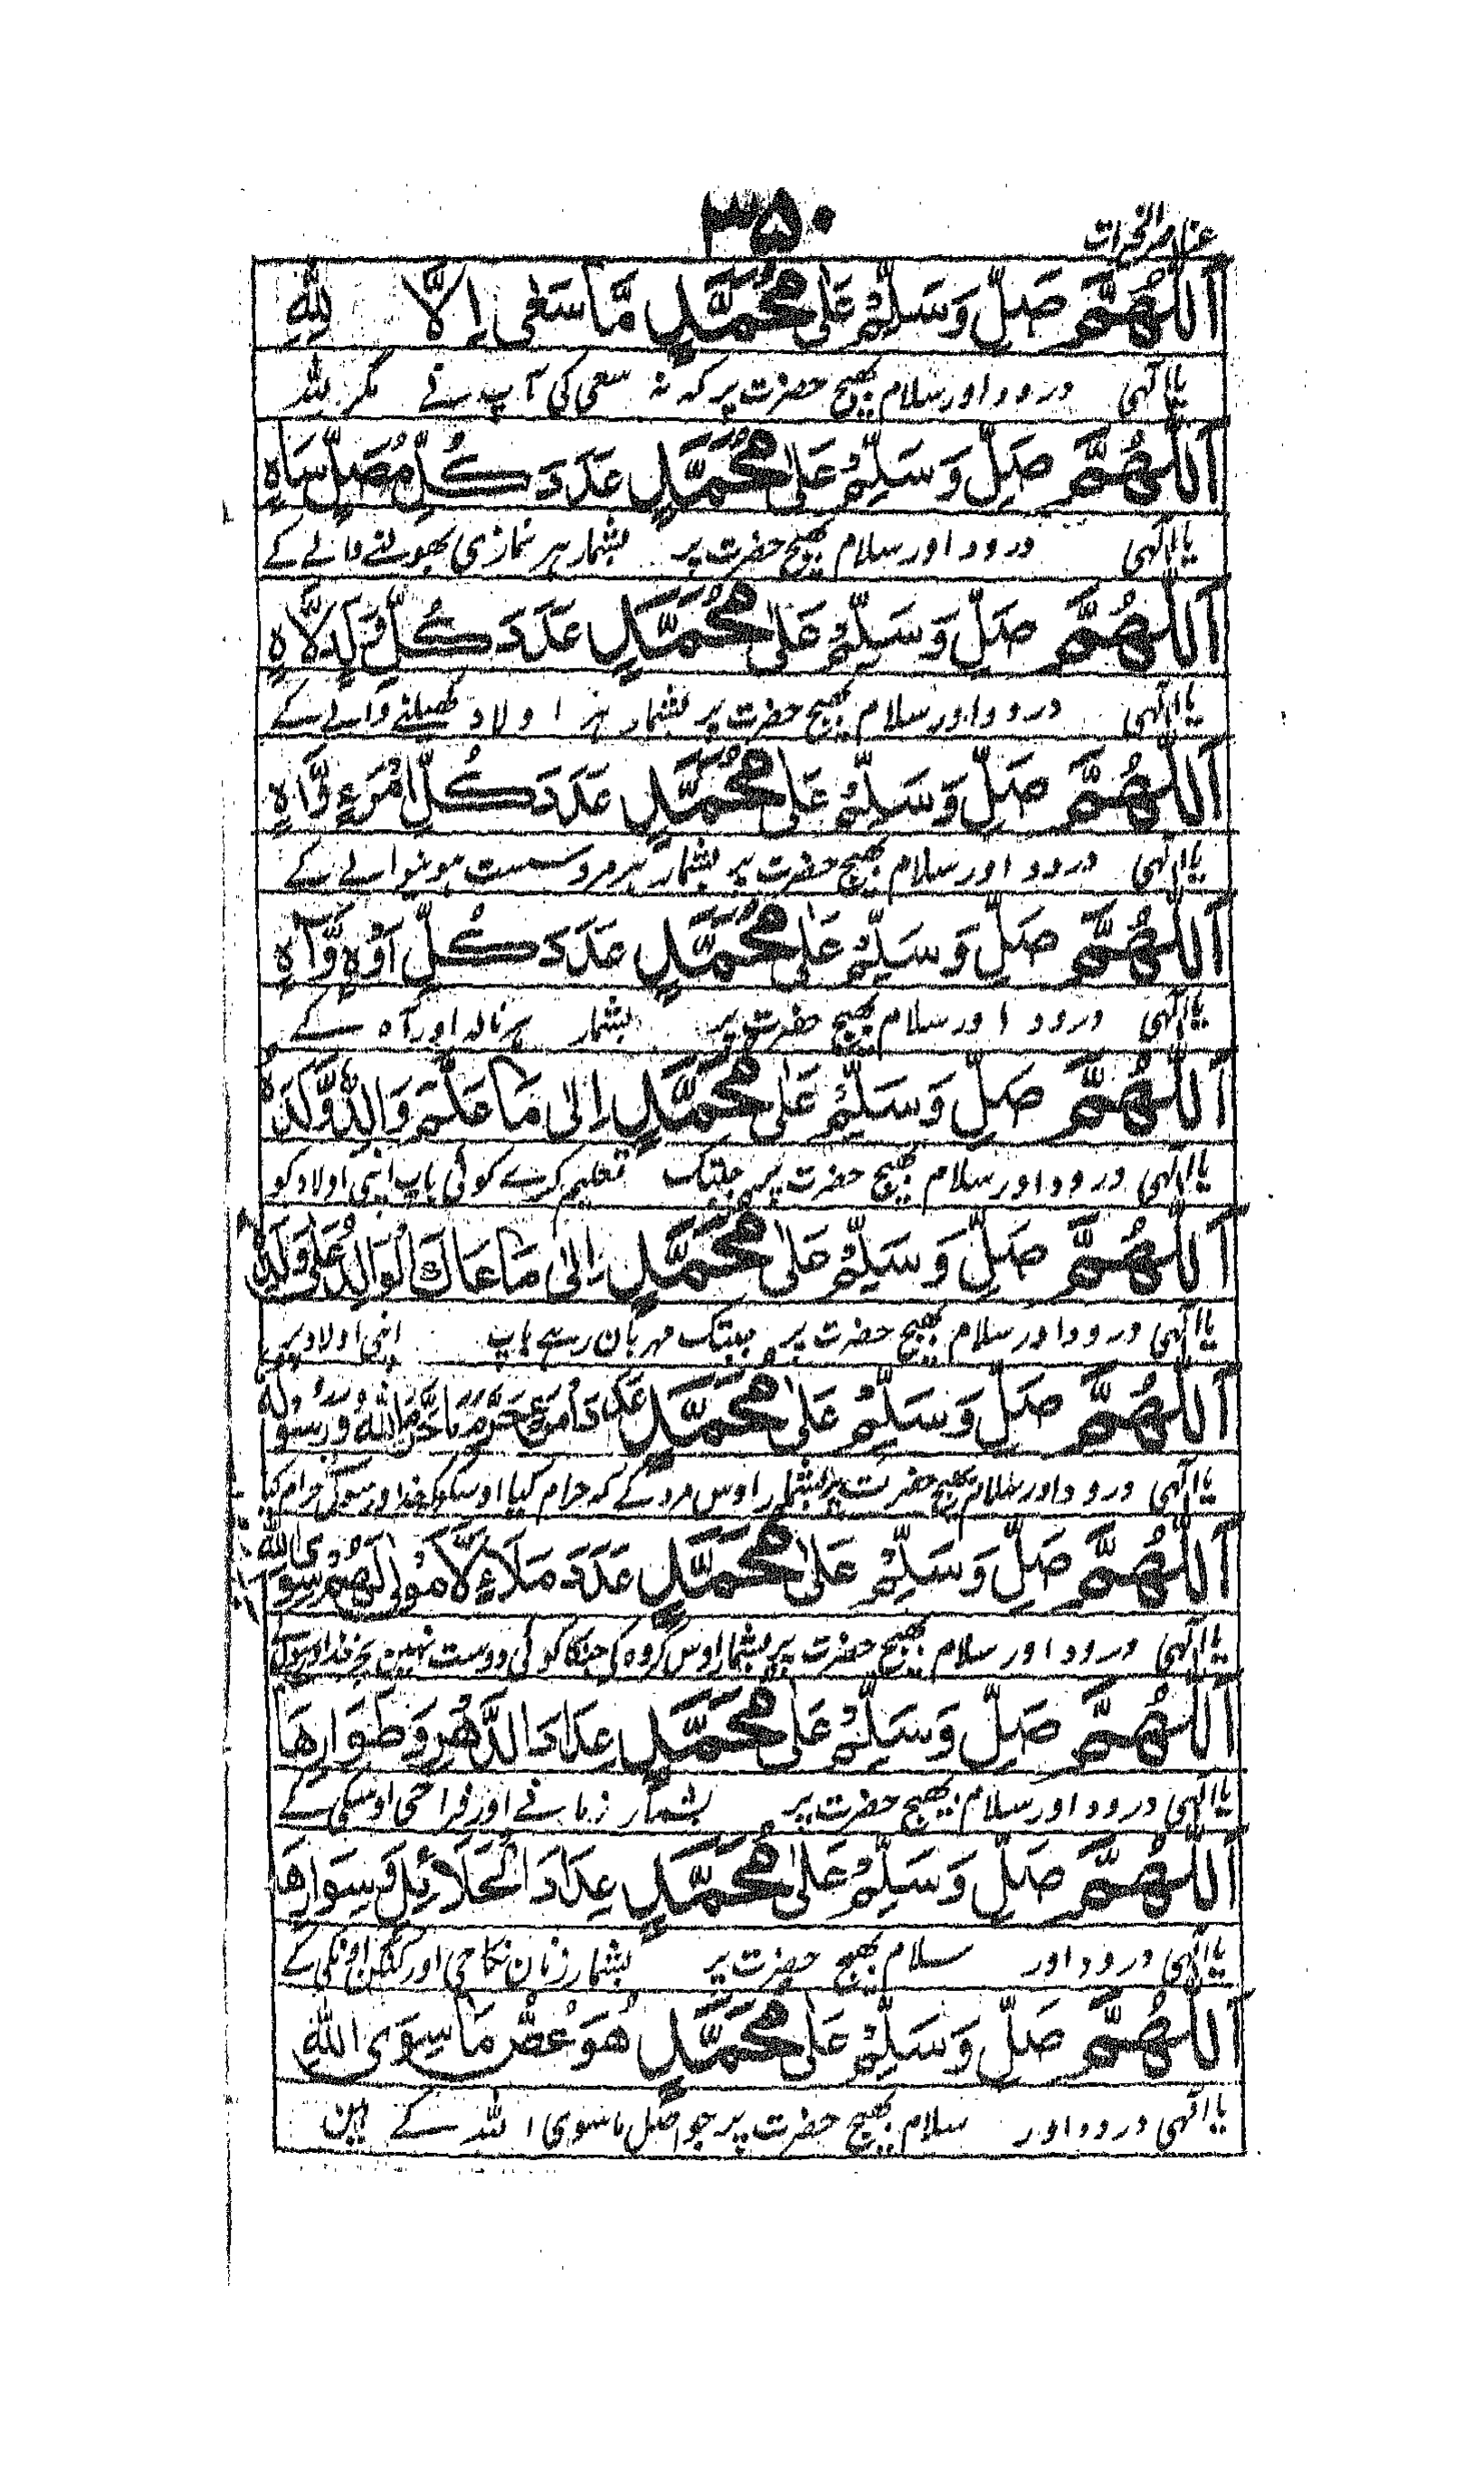 ۳۵۰
عناصر الخیرات
اَللّٰهُمَّ صَلِّ وَسَلِّمْ عَلٰى مُحَمَّدٍ مَّا سَعٰى إِلَّا لِلّٰهِ
یا الٰہی درود اور سلام بھیج حضرت پر کہ نہ سعی کی آپ نے مگر للہ
اَللّٰهُمَّ صَلِّ وَسَلِّمْ عَلٰى مُحَمَّدٍ عَدَدَ كُلِّ مُصَلٍّ سَاهٍ
یا الٰہی درود اور سلام بھیج حضرت پر بشمار ہر نمازی بھولنے والے کے
اَللّٰهُمَّ صَلِّ وَسَلِّمْ عَلٰى مُحَمَّدٍ عَدَدَ كُلِّ وَلَدٍ لَّاهٍ
یا الٰہی درود اور سلام بھیج حضرت پر بشمار ہر اولاد کھیلنے والے کے
اَللّٰهُمَّ صَلِّ وَسَلِّمْ عَلٰى مُحَمَّدٍ عَدَدَ كُلِّ امْرَءٍ وَّاهٍ
یا الٰہی درود اور سلام بھیج حضرت پر بشمار ہر مرد سست ہونیوالے کے
اَللّٰهُمَّ صَلِّ وَسَلِّمْ عَلٰى مُحَمَّدٍ عَدَدَ كُلِّ اَوْهٍ وَّآهٍ
یا الٰہی درود اور سلام بھیج حضرت پر بشمار ہر نالہ اور آہ کے
اَللّٰهُمَّ صَلِّ وَسَلِّمْ عَلٰى مُحَمَّدٍ اِلٰى مَا عَلَّمَ وَالِدٌ وَّلَدَهٗ
یا الٰہی درود اور سلام بھیج حضرت پر جبتک تعلیم کرے کوئی باپ اپنی اولاد کو
اَللّٰهُمَّ صَلِّ وَسَلِّمْ عَلٰى مُحَمَّدٍ اِلٰى مَا عَاكَ الْوَالِدُ عَلٰى وَلَدِهٖ
یا الٰہی درود اور سلام بھیج حضرت پر جبتک مہربان رہے باپ اپنی اولاد پر
اَللّٰهُمَّ صَلِّ وَسَلِّمْ عَلٰى مُحَمَّدٍ عَدَدَ امْرَءٍ حَرَّمَ مَا حَرَّمَ اللّٰهُ وَرَسُوْلُهٗ
یا الٰہی درود اور سلام بھیج حضرت پر بشمار اوس مرد کے کہ حرام کیا اوسکو کہ خدا و رسول حرام کیا
اَللّٰهُمَّ صَلِّ وَسَلِّمْ عَلٰى مُحَمَّدٍ عَدَدَ مَلَاءٍ لَّا مَوْلٰى لَهُمْ سِوَى اللّٰهِ
یا الٰہی درود اور سلام بھیج حضرت پر بشمار اوس گروہ کی جنکا کوئی دوست نہین بجز خدا و رسول کے
اَللّٰهُمَّ صَلِّ وَسَلِّمْ عَلٰى مُحَمَّدٍ عِدَادَ الدَّهْرِ وَطَوَارِهَا
یا الٰہی درود اور سلام بھیج حضرت پر بشمار زمانے اور فراخی اوسکی کے
اَللّٰهُمَّ صَلِّ وَسَلِّمْ عَلٰى مُحَمَّدٍ عِدَادَ الْحَلَائِلِ وَسِوَارِهَا
یا الٰہی درود اور سلام بھیج حضرت پر بشمار زنان نکاحی اور کنگن اونکی کے
اَللّٰهُمَّ صَلِّ وَسَلِّمْ عَلٰى مُحَمَّدٍ هُوَ مَا سِوَى اللّٰهِ
یا الٰہی درود اور سلام بھیج حضرت پر جو اصل ماسوی اللہ کے ہین